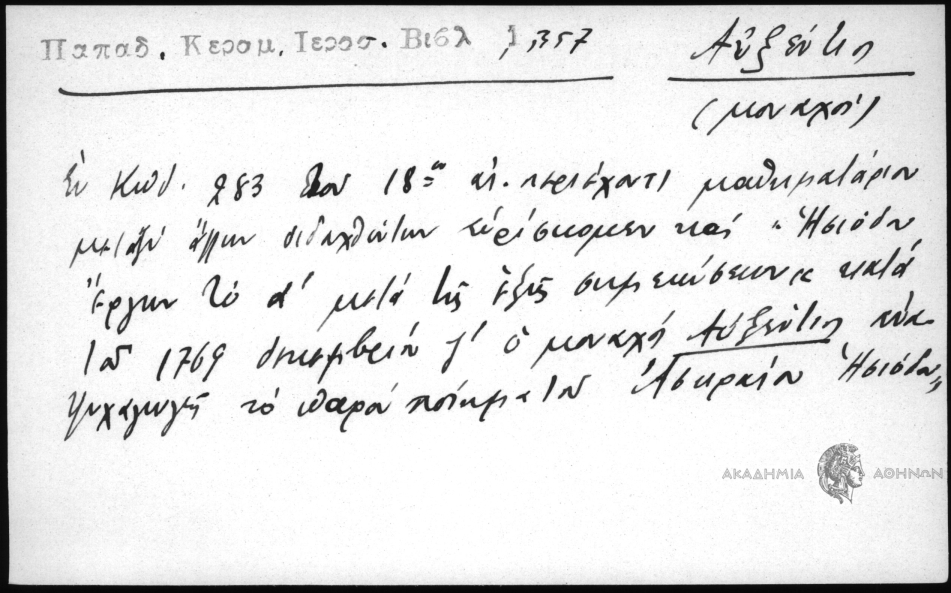 Παπαδ. Κεραμ. Ιεροσ. Βιβλ 1, 357
Αὐξέντιος
(μοναχός)
Ἐν Κώδ. 283 του 18ου αι. περιέχοντι μαθηματάριον
μεταξύ ἄλλων διδαχθέντων εὑρίσκομεν καί "Ἡσιόδου
Ἔργων τό α' μετά τῆς ἑξῆς σημειώσεως κατά
τό 1769 δεκεμβρίου γ' ὁ μοναχός Αὐξέντιος
ψυχαγωγῆς τό παρόν ποίημα τοῦ Ἀσκραίου Ἡσιόδου"
ΑΚΑΔΗΜΙΑ ΑΘΗΝΩΝ